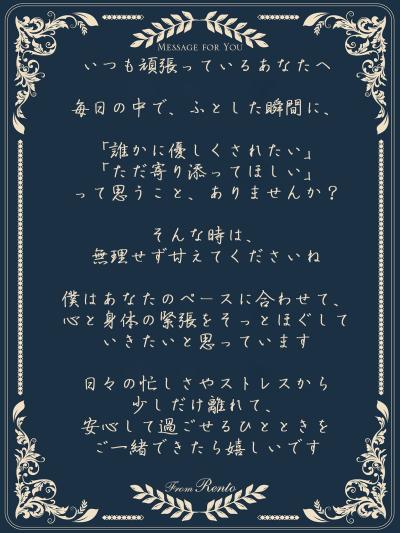 MESSAGE FOR YOU
いつも頑張っているあなたへ
毎日の中で、ふとした瞬間に、
「誰かに優しくされたい」
「ただ寄り添ってほしい」
って思うこと、ありませんか？
そんな時は、
無理せず甘えてくださいね
僕はあなたのペースに合わせて、
心と身体の緊張をそっとほぐして
いきたいと思っています
日々の忙しさやストレスから
少しだけ離れて、
安心して過ごせるひとときを
ご一緒できたら嬉しいです
From Rento